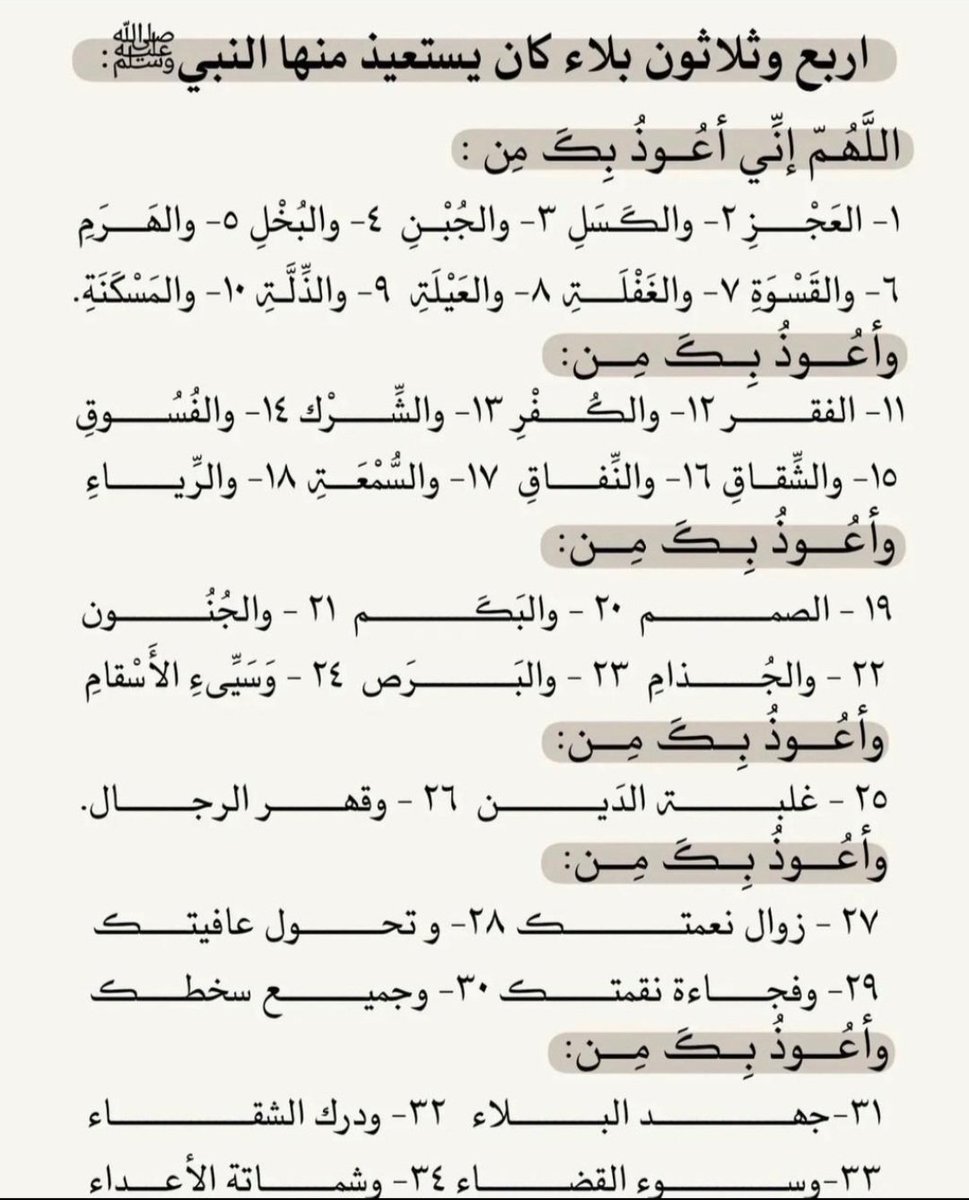 اربع وثلاثون بلاء كان يستعيذ منها النبي ﷺ:
اللَّهُمّ إنِّي أعُوذُ بِكَ مِن :
١- العَجْزِ ٢- والكَسَلِ ٣- والجُبْنِ ٤- والبُخْلِ ٥- والهَرَمِ
٦- والقَسْوَةِ ٧- والغَفْلَةِ ٨- والعَيْلَةِ ٩- والذِّلَّةِ ١٠- والمَسْكَنَةِ.
وأعُوذُ بِكَ مِن:
١١- الفقر ١٢- والكُفْرِ ١٣- والشِّرْك ١٤- والفُسُوقِ
١٥- والشِّقاقِ ١٦- والنِّفاقِ ١٧- والسُّمْعَةِ ١٨- والرِّياءِ
وأعُوذُ بِكَ مِن:
١٩ - الصمم ٢٠ - والبَكَم ٢١ - والجُنُون
٢٢ - والجُذامِ ٢٣ - والبَرَص ٢٤ - وَسَيِّىءِ الأَسْقامِ
وأعُوذُ بِكَ مِن:
٢٥ - غلبة الدَين ٢٦ - وقهر الرجال.
وأعُوذُ بِكَ مِن:
٢٧ - زوال نعمتك ٢٨- و تحول عافيتك
٢٩- وفجاءة نقمتك ٣٠- وجميع سخطك
وأعُوذُ بِكَ مِن:
٣١-جهد البلاء ٣٢- ودرك الشقاء
٣٣-وسوء القضاء ٣٤- وشماتة الأعداء